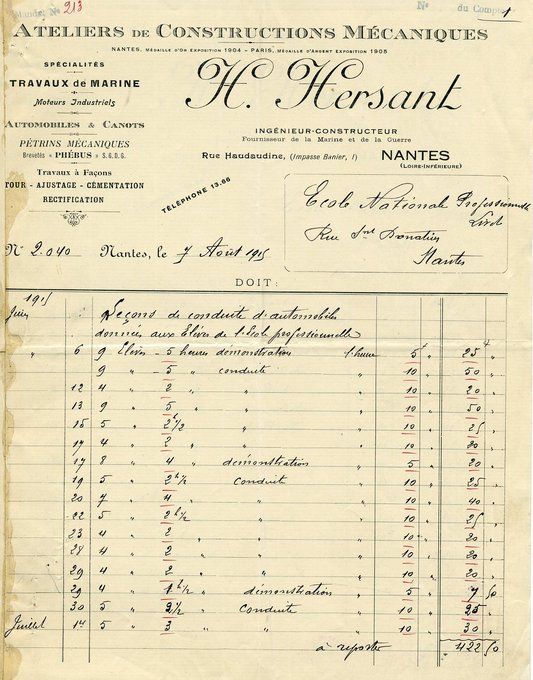 Mandat No 213
No du Compte 1
ATELIERS DE CONSTRUCTIONS MÉCANIQUES
NANTES, MÉDAILLE D'OR EXPOSITION 1904 - PARIS, MÉDAILLE D'ARGENT EXPOSITION 1905
SPÉCIALITÉS
TRAVAUX de MARINE
Moteurs Industriels
AUTOMOBILES & CANOTS
PÉTRINS MÉCANIQUES
Brevetés « PHÉBUS » S.G.D.G.
Travaux à Façons
TOUR - AJUSTAGE - CÉMENTATION
RECTIFICATION
H. Hersant
INGÉNIEUR-CONSTRUCTEUR
Fournisseur de la Marine et de la Guerre
Rue Haudaudine, (Impasse Banier, 1) NANTES
(LOIRE-INFÉRIEURE)
TÉLÉPHONE 13.66
Ecole Nationale Professionnelle
Livet
Rue Snt Donatien
Nantes
No 2.040 Nantes, le 7 Août 1915
DOIT :
1915
Juin Leçons de conduite d'automobiles
données aux Elèves de l'Ecole professionnelle
" 6 9 Elèves - 5 heures démonstration l'heure 5 " 25 "
9 " 5 " conduite " 10 " 50 "
12 4 " 2 " " " 10 " 20 "
13 9 " 5 " " " 10 " 50 "
15 5 " 2 h 1/2 " " 10 " 25 "
17 4 " 2 " " " 10 " 20 "
17 8 " 4 " démonstration " 5 " 20 "
19 5 " 2 h 1/2 conduite " 10 " 25 "
20 7 " 4 " " " 10 " 40 "
22 5 " 2 h 1/2 " " 10 " 25 "
23 4 " 2 " " " 10 " 20 "
28 4 " 2 " " " 10 " 20 "
29 4 " 2 " " " 10 " 20 "
29 4 " 1 h 1/2 " démonstration " 5 " 7 50
30 5 " 2 1/2 " conduite " 10 " 25 "
Juillet 1er 5 " 3 " " " 10 " 30 "
à reporter 422 50